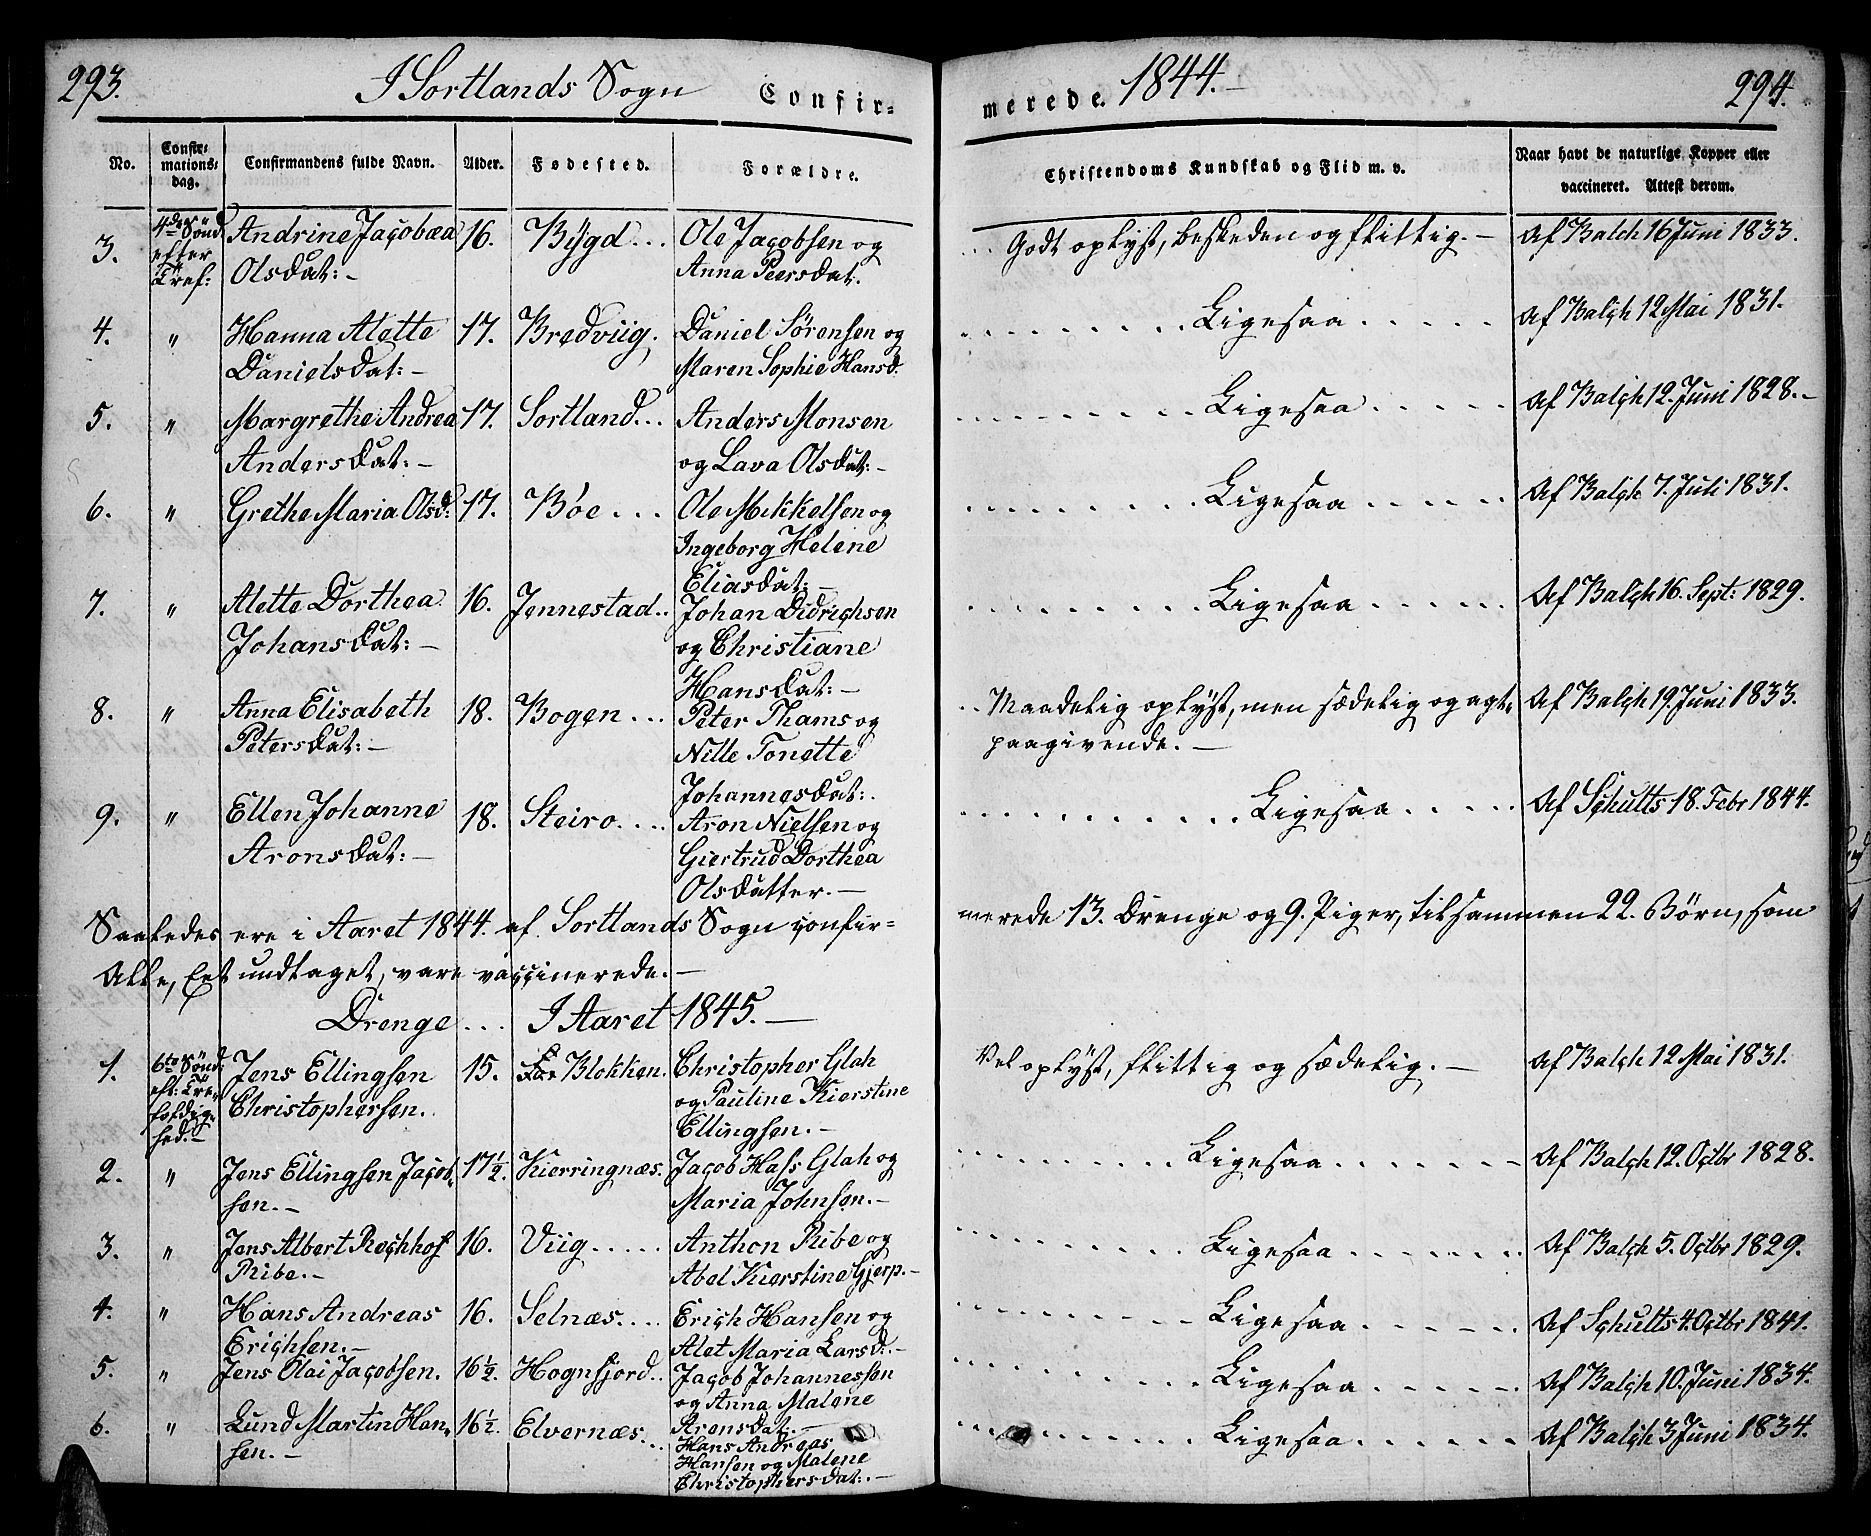 293.
I Sortlands Sogn
Confir-
No.
Confir-
mations-
dag.
Confirmandens fulde Navn.
Alder.
Fødested.
Forældre.
3.
4de Sønd.
efter
Tref:
Andrine Jacobæa
Olsdat:-
16.
Bÿgd...
Ole Jacobsen og
Anna Peersdat.
4.
"
Hanna Alette
Danielsdat:-
17.
Bredviig.
Daniel Sørensen og
Maren Sophie Hansd.
5.
"
Margrethe Andrea
Andersdat:-
17.
Sortland...
Anders Monsen
og Lava Olsdat:-
6.
"
Grethe Maria Olsd:
17.
Bøe...
Ole Mikkelsen og
Ingeborg Helene
Eliasdat:-
7.
"
Alette Dorthea
Johansdat:-
16.
Jennestad..
Johan Didrichsen
og Christiane
Hansdat:-
8.
"
Anna Elisabeth
Petersdat:-
18.
Bogen...
Peter Thams og
Nille Tonette
Johannesdat:.
9.
"
Ellen Johanne
Aronsdat:-
18.
Steiro....
Aron Nielsen og
Giertrud Dorthea
Olsdatter.-
Saaledes ere i Aaret 1844. af Sortlands Sogn confir=
Alle, Eet undtaget, vare vaccinerede.-
Drenge... I Aaret 1845.-
1.
6te Sønd:
eft: Tre-
foldig-
hed.-
Jens Ellingsen
Christophersen.
15.
Blokken.
Christopher Glah
og Pauline Kierstine
Ellingsen.-
2.
"
Jens Ellingsen Jacob-
sen.-
17½.
Kierringnæs.
Jacob Hass Glah og
Maria Johnsen.-
3.
"
Jens Albert Rechhof
Ribe.-
16.
Viig.....
Anthon Ribe og
Abel Kierstine Gjerp.-
4.
"
Hans Andreas
Erichsen.-
16.
Selnæs....
Erich Hansen og
Alet Maria Larsd:.-
5.
"
Jens Olai Jacobsen.
16½.
Hognfjord..
Jacob Johannessen
og Anna Malene
Aronsdat:-
6.
"
Lund Martin Han-
sen.-
16½.
Elvernæs...
Hans Andreas
Hansen og Malene
Christophersdat:-
merede. 1844.-
294.
Christendoms Kundskab og Flid m. v.
Naar havt de naturlige Kopper eller
vaccineret. Attest derom.
... Godt oplyst, beskeden og flittig.-
Af Balch 16 Juni 1833.
......... Ligesaa .....
Af Balch 12 Mai 1831.
......... Ligesaa .....
Af Balch 12. Juni 1828.-
......... Ligesaa .....
Af Balch 7. Juli 1831.
......... Ligesaa .....
Af Balch 16. Sept: 1829.
.. Maadelig oplyst, men sædelig og agt-
paagivende.-
Af Balch 19. Juni 1833.
........... Ligesaa .....
Af Schults 18. Febr 1844.
merede 13. Drenge og 9. Piger, tilsammen 22. Børn, som
Vel oplyst, flittig og sædelig.-
Af Balch 12 Mai 1831.
......... Ligesaa .......
Af Balch 12. Octbr 1828.
......... Ligesaa .......
Af Balch 5. Octbr 1829.
......... Ligesaa ......
Af Schults 4. Octbr 1841.
......... Ligesaa ......
Af Balch 10. Juni 1834.
......... Ligesaa ......
Af Balch 3 Juni 1834.